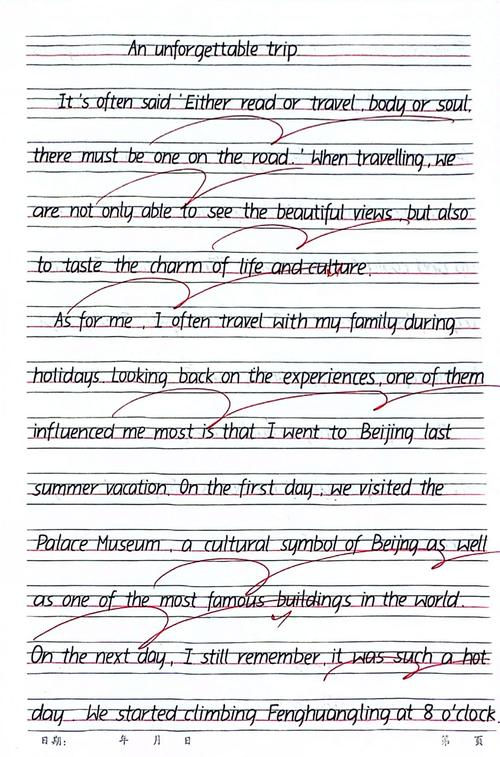 An unforgettable trip
It's often said 'Either read or travel, body or soul,
there must be one on the road.' When travelling, we
are not only able to see the beautiful views, but also
to taste the charm of life and culture.
As for me, I often travel with my family during
holidays. Looking back on the experiences, one of them
influenced me most is that I went to Beijing last
summer vacation. On the first day, we visited the
Palace Museum, a cultural symbol of Beijng as well
as one of the most famous buildings in the world.
On the next day, I still remember, it was such a hot
day. We started climbing Fenghuangling at 8 o'clock.
日期: 年 月 日 第 页